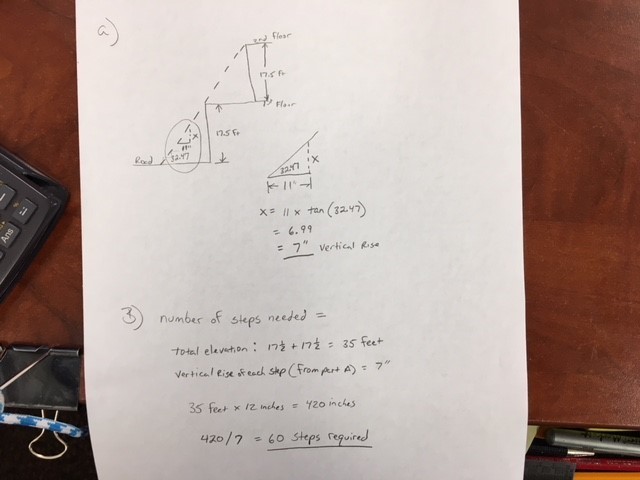 a)
2nd Floor
17.5 ft
1st Floor
17.5 ft
x
11"
Road
32.47
32.47
x
11"
x = 11 x tan (32.47)
= 6.99
= 7" Vertical Rise
B) number of steps needed =
total elevation : 17½ + 17½ = 35 feet
Vertical Rise of each step (from part A) = 7"
35 feet x 12 inches = 420 inches
420/7 = 60 steps required
Ans